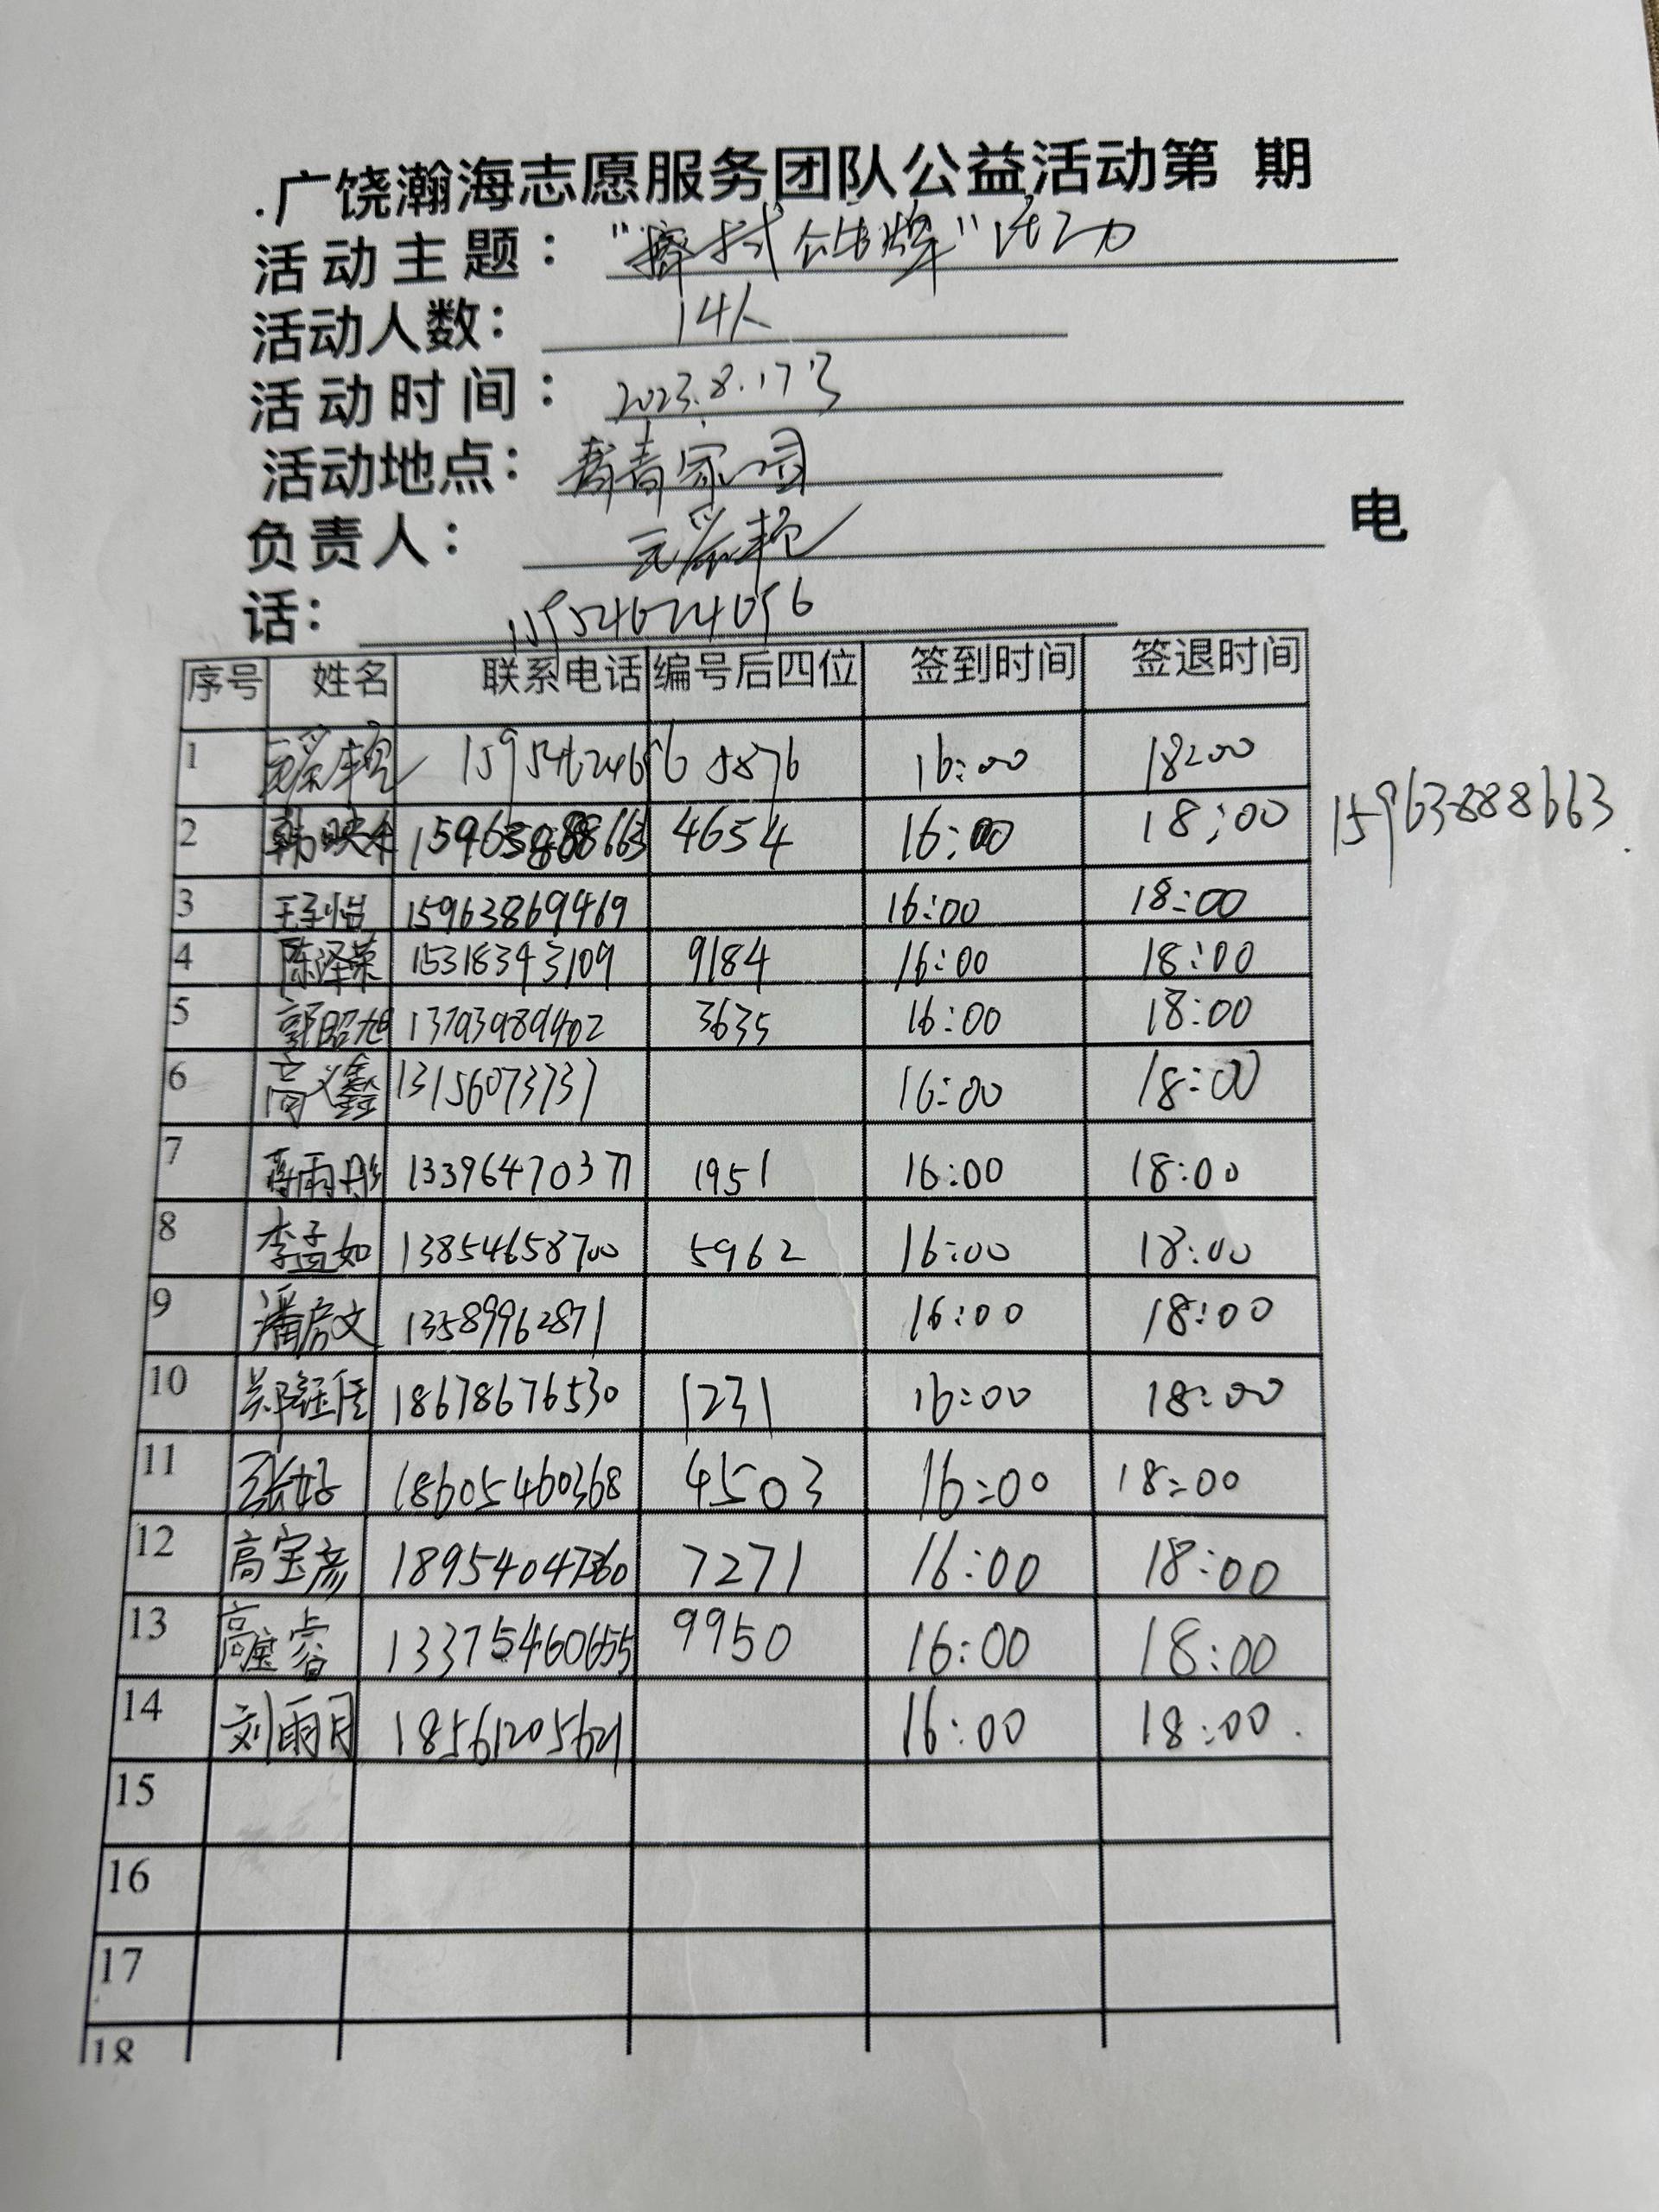 .广饶瀚海志愿服务团队公益活动第 期
活动主题："擦拭公告牌"活动
活动人数：14人
活动时间：2023.8.17号
活动地点：青家园
负责人： 电
话：15954624056
序号 姓名 联系电话 编号后四位 签到时间 签退时间
1 5876 16:00 18:00
2 4654 16:00 18:00 15963888663
3 王 怡 15963869469 16:00 18:00
4 陈泽荣 15318343109 9184 16:00 18:00
5 郭昭旭 13793989402 3635 16:00 18:00
6 高义鑫 13156073737 16:00 18:00
7 雨彤 13396470377 1951 16:00 18:00
8 李孟如 13854658700 5962 16:00 18:00
9 潘房文 13589962871 16:00 18:00
10 郑钰佳 18678676530 1231 16:00 18:00
11 张好 18605460368 4503 16:00 18:00
12 高宝彦 18954047360 7271 16:00 18:00
13 高宝睿 13375460655 9950 16:00 18:00
14 刘雨月 18561205621 16:00 18:00.
15
16
17
18